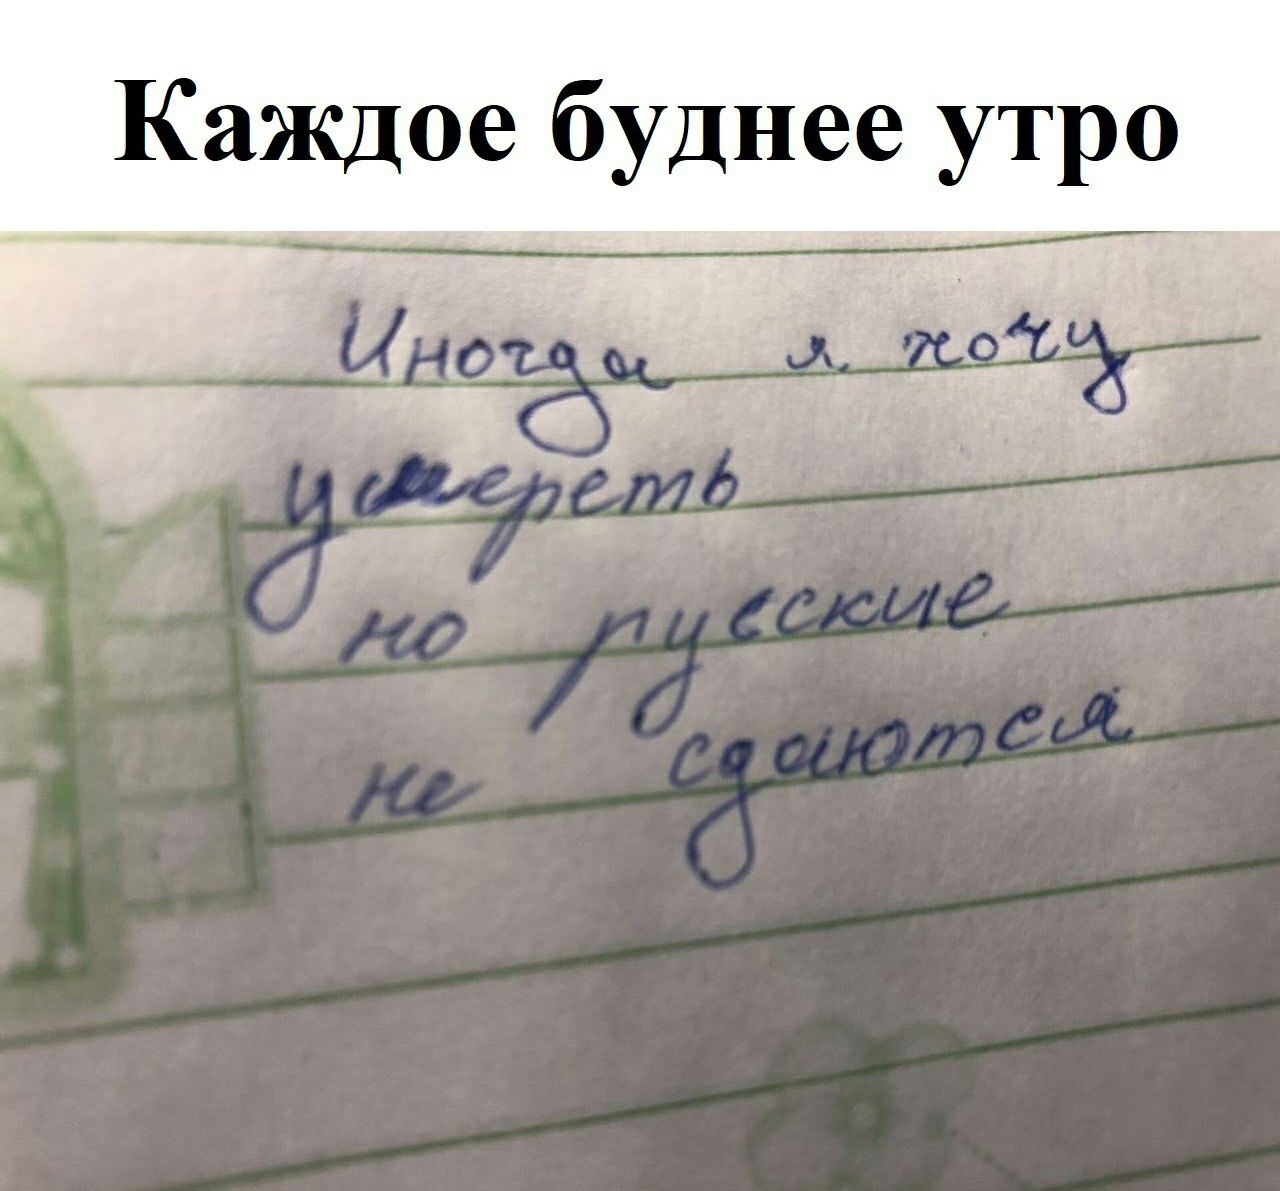 Каждое буднее утро
Иногда я хочу
умереть
но русские
не сдаются